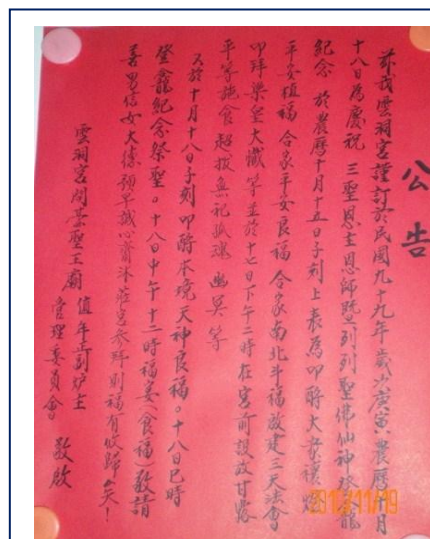 公告
茲我雲洞宮謹訂於民國九十九年歲次庚寅農曆十月
十八日為慶祝 三聖恩主恩師暨列列聖佛仙神登龕
紀念 於農曆十月十五日子刻上表為叩酬大眾禳燈
平安植福 合家平安良福 合家南北斗福放建三天法會
叩拜樂皇大懺等並於十七日下午二時在宮前設放甘露
平等施食 超拔無祀孤魂 幽冥等
又於十月十八日子刻叩酬本境天神良福。十八日巳時
登龕紀念祭聖。十八日中午十二時福宴(食福)敬請
善男信女大德預早誠心齋沐莊皂參拜則福有攸歸矣!
雲洞宮開蓋聖王廟 值年正副炉主
管理委員會 敬啟
2010/11/19